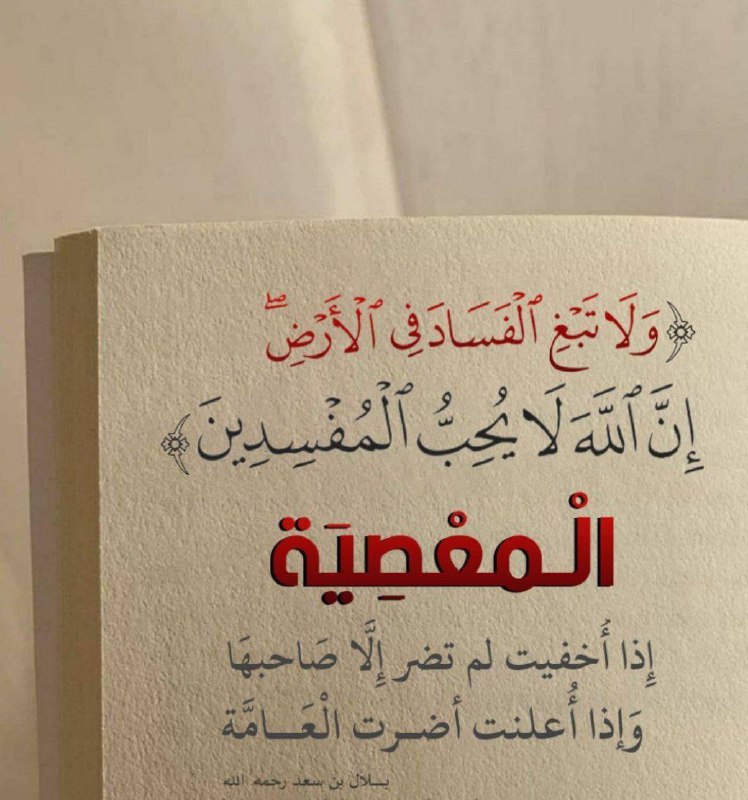 ﴿وَلَا تَبْغِ ٱلْفَسَادَ فِى ٱلْأَرْضِ ۖ
إِنَّ ٱللَّهَ لَا يُحِبُّ ٱلْمُفْسِدِينَ﴾
الْمعْصِيَة
إِذا أُخفيت لم تضر إِلَّا صَاحبهَا
وَإذا أُعلنت أضـرت الْعَــامَّة
بــلال بن سعد رحمه الله